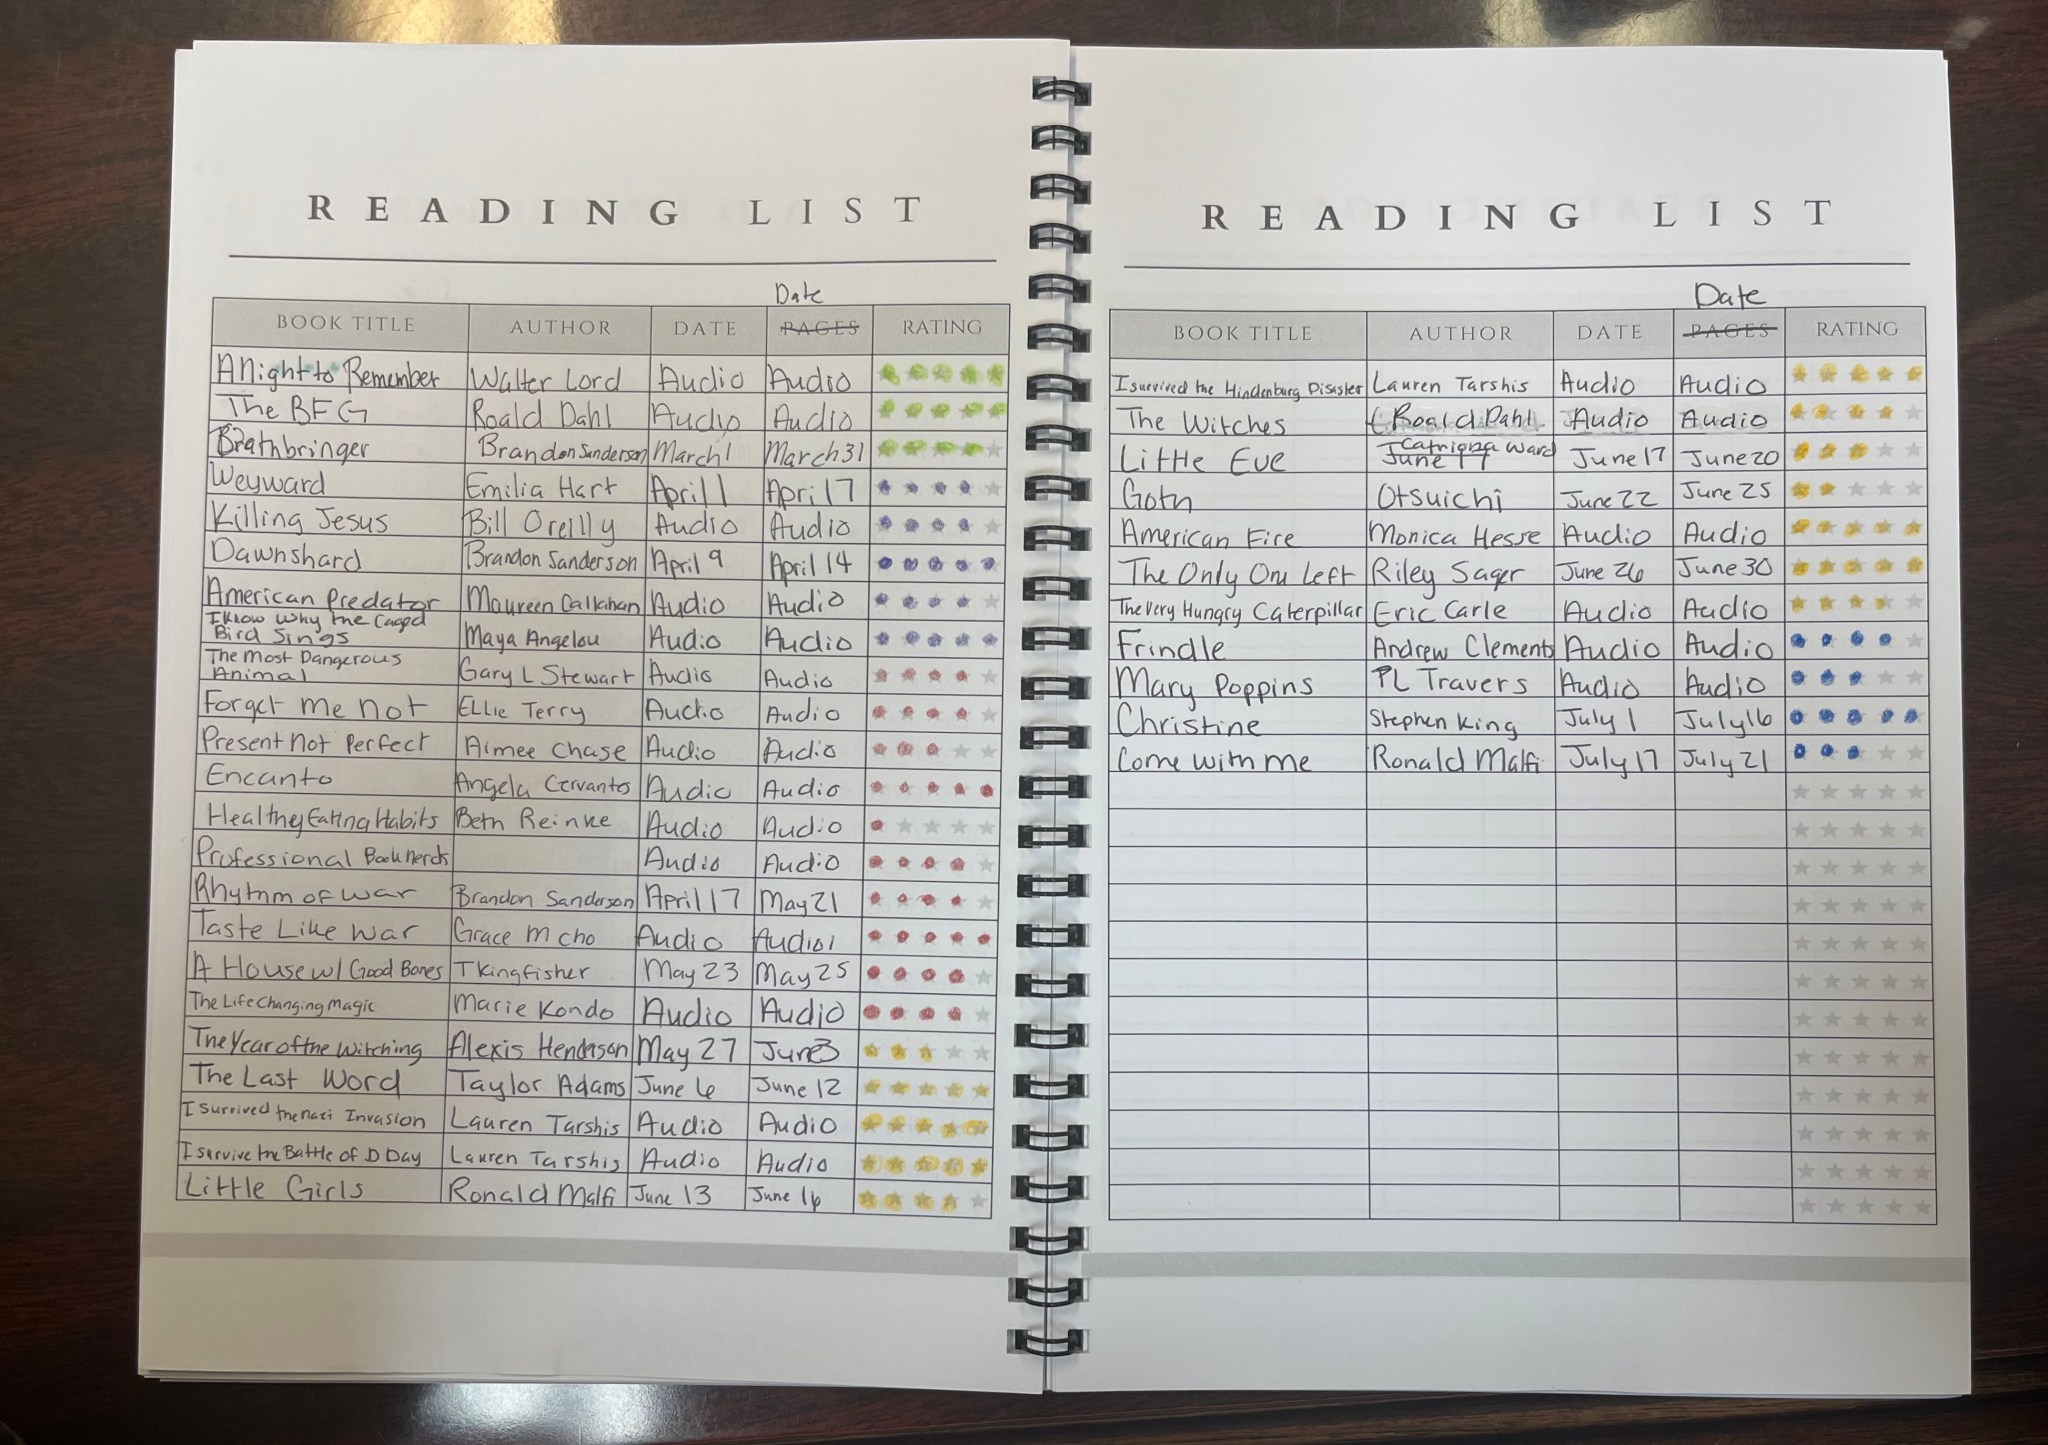 READING LIST
Date
BOOK TITLE AUTHOR DATE PAGES RATING
A Night to Remember Walter Lord Audio Audio
The BFG Roald Dahl Audio Audio
Brathbringer Brandon Sanderson March 1 March 31
Weyward Emilia Hart April 1 April 7
Killing Jesus Bill Oreilly Audio Audio
Dawnshard Brandon Sanderson April 9 April 14
American Predator Maureen Callahan Audio Audio
I Know Why the Caged
Bird Sings Maya Angelou Audio Audio
The Most Dangerous
Animal Gary L Stewart Audio Audio
Forget me not Ellie Terry Audio Audio
Present Not Perfect Aimee Chase Audio Audio
Encanto Angela Cervantes Audio Audio
Healthey Eating Habits Beth Reinke Audio Audio
Professional Book nerds Audio Audio
Rhythm of War Brandon Sanderson April 17 May 21
Taste Like War Grace m cho Audio Audio
A House w/ Good Bones T Kingfisher May 23 May 25
The Life Changing Magic Marie Kondo Audio Audio
The Year of the Witching Alexis Henderson May 27 June 3
The Last Word Taylor Adams June 6 June 12
I survived the nazi Invasion Lauren Tarshis Audio Audio
I survive the Battle of D Day Lauren Tarshis Audio Audio
Little Girls Ronald Malfi June 13 June 16
READING LIST
Date
BOOK TITLE AUTHOR DATE PAGES RATING
I survived the Hindenburg Disaster Lauren Tarshis Audio Audio
The Witches Roald Dahl Audio Audio
Little Eve Catriona Ward June 17 June 17 June 20
Goth Otsuichi June 22 June 25
American Fire Monica Hesse Audio Audio
The Only One Left Riley Sager June 26 June 30
The Very Hungry Caterpillar Eric Carle Audio Audio
Frindle Andrew Clements Audio Audio
Mary Poppins PL Travers Audio Audio
Christine Stephen King July 1 July 16
Come with me Ronald Malfi July 17 July 21